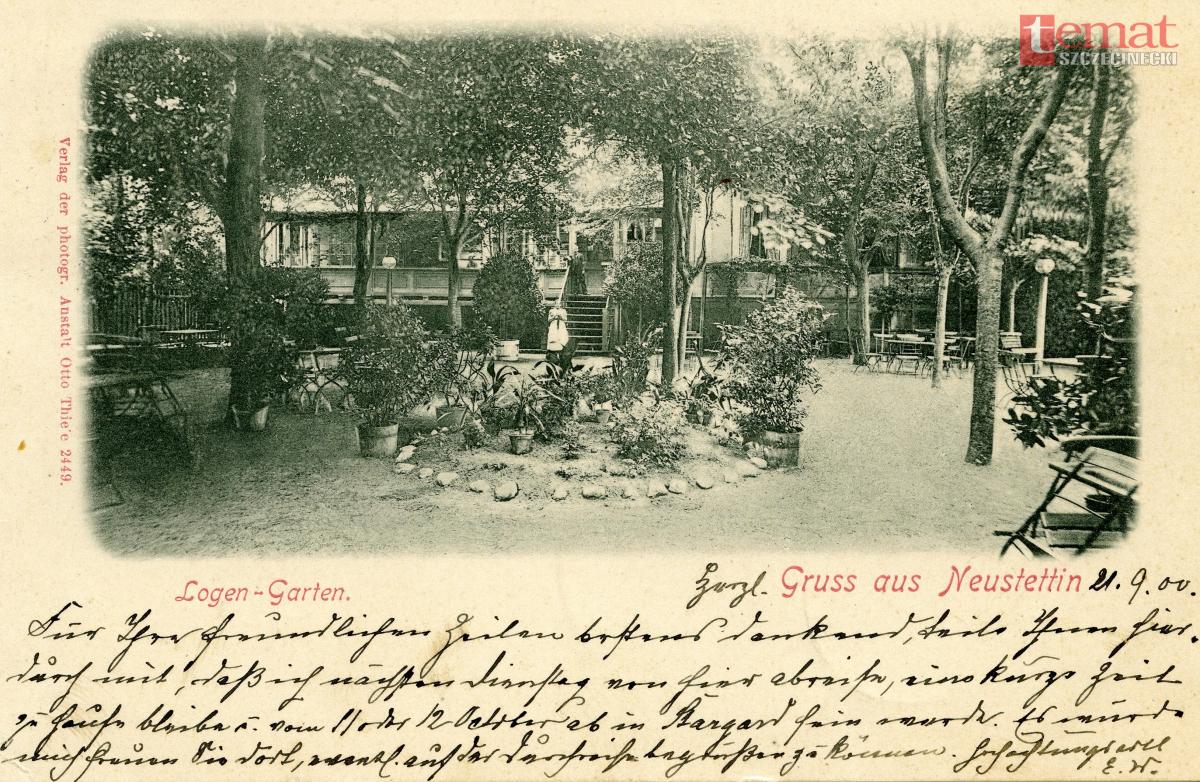 temat
SZCZECINECKI
Verlag der photogr. Anstalt Otto Thiele 2449.
Logen-Garten.
Herzl. Gruss aus Neustettin 21.9.00.
Für Ihre freundlichen Zeilen bestens dankend, teile Ihnen hier-
durch mit, daß ich nächsten Dienstag von hier abreise, eine kurze Zeit
zu Hause bleibe u. vom 11 oder 12 October ab in Stargard sein werde. Es würde
mich freuen Sie dort, eventl. auf der Durchreise begrüßen zu können. Hochachtungsvoll
E. W.